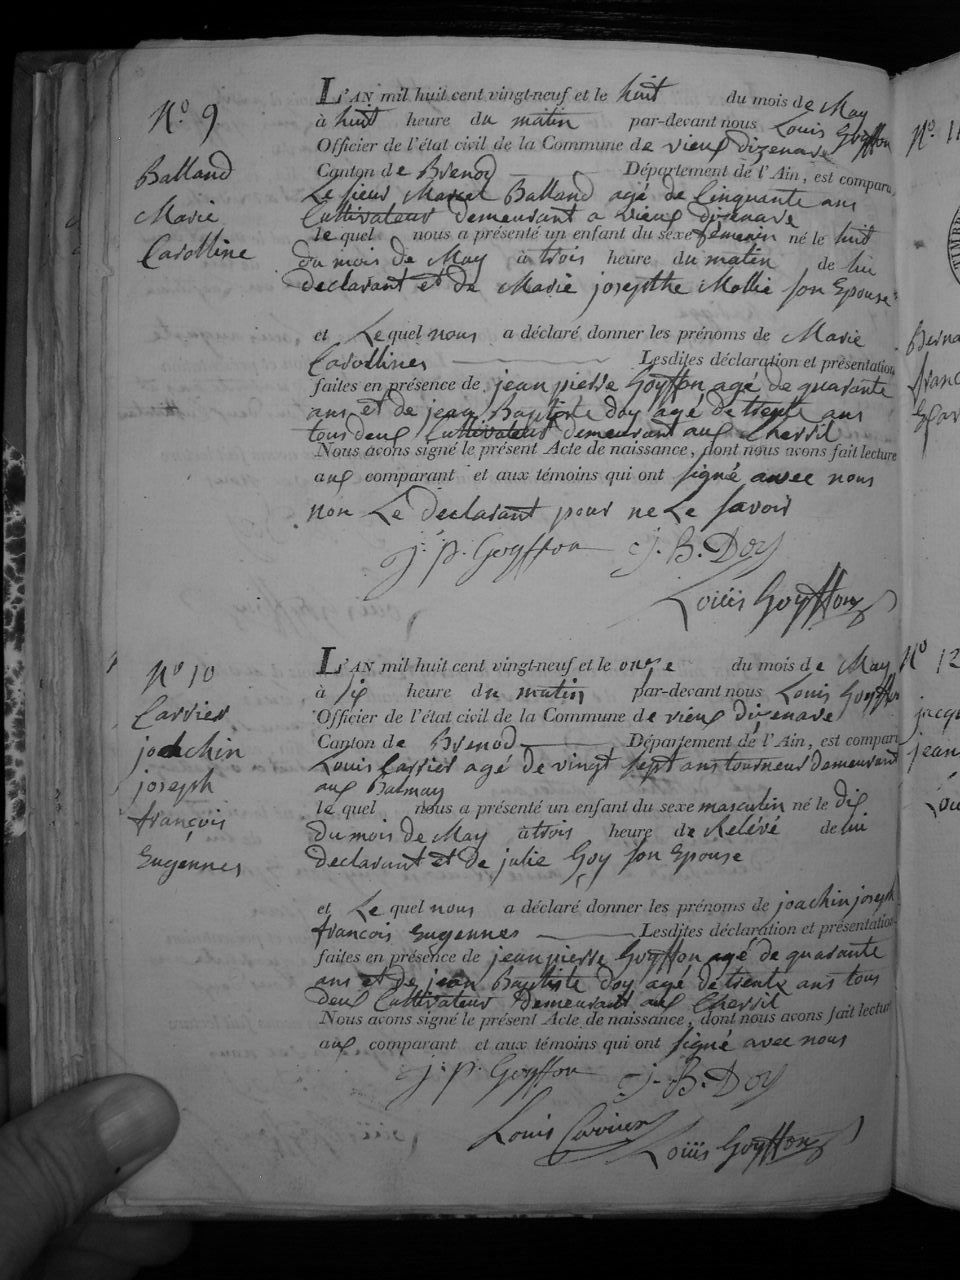 N.o 9
Balland
Marie
Carolline
L'AN mil huit cent vingt-neuf et le huit du mois de May
à huit heure du matin par-devant nous Louis Goyffon
Officier de l'état civil de la Commune de vieux dizenave
Canton de Brenod Département de l'Ain, est comparu
Le sieur Marcel Balland agé de Cinquante ans
Cultivateur demeurant a vieux dizenave
le quel nous a présenté un enfant du sexe femenin né le huit
du mois de May à trois heure du matin de lui
declarant et de Marie josepthe Mollie son Epouse
et Le quel nous a déclaré donner les prénoms de Marie
Carollines Lesdites déclaration et présentation
faites en présence de jean pierre Goyffon agé de quarante
ans et de jean Baptiste doy agé de trente ans
tous deux Cultivateur demeurant aux Chevril
Nous avons signé le présent Acte de naissance, dont nous avons fait lecture
aux comparant et aux témoins qui ont signé avec nous
non Le declarant pour ne Le savoir
j. p. Goyffon j. B. Doy
Louiis Goyffon
N.o 10
Carrier
joachin
joseph
françois
Eugennes
L'AN mil huit cent vingt-neuf et le onze du mois de May
à six heure du matin par-devant nous Louis Goyffon
Officier de l'état civil de la Commune de vieux dizenave
Canton de Brenod Département de l'Ain, est comparu
Louis Carrier agé de vingt sept ans tourneur demeurant
aux Balmay
le quel nous a présenté un enfant du sexe masculin né le dix
du mois de May à trois heure de Relévé de lui
declarant et de julie Goy son Epouse
et Le quel nous a déclaré donner les prénoms de joachin joseph
francois Eugennes Lesdites déclaration et présentation
faites en présence de jean pierre Goyffon agé de quarante
ans et de jean Baptiste doy agé de trente ans tous
deux Cultivateur demeurant aux Chevril
Nous avons signé le présent Acte de naissance, dont nous avons fait lectur
aux comparant et aux témoins qui ont signé avec nous
j. p. Goyffon j. B. Doy
Louis Carrier Louiis Goyffon
N.o 11
Berna
franc
N.o 12
jacq
jean
Lou